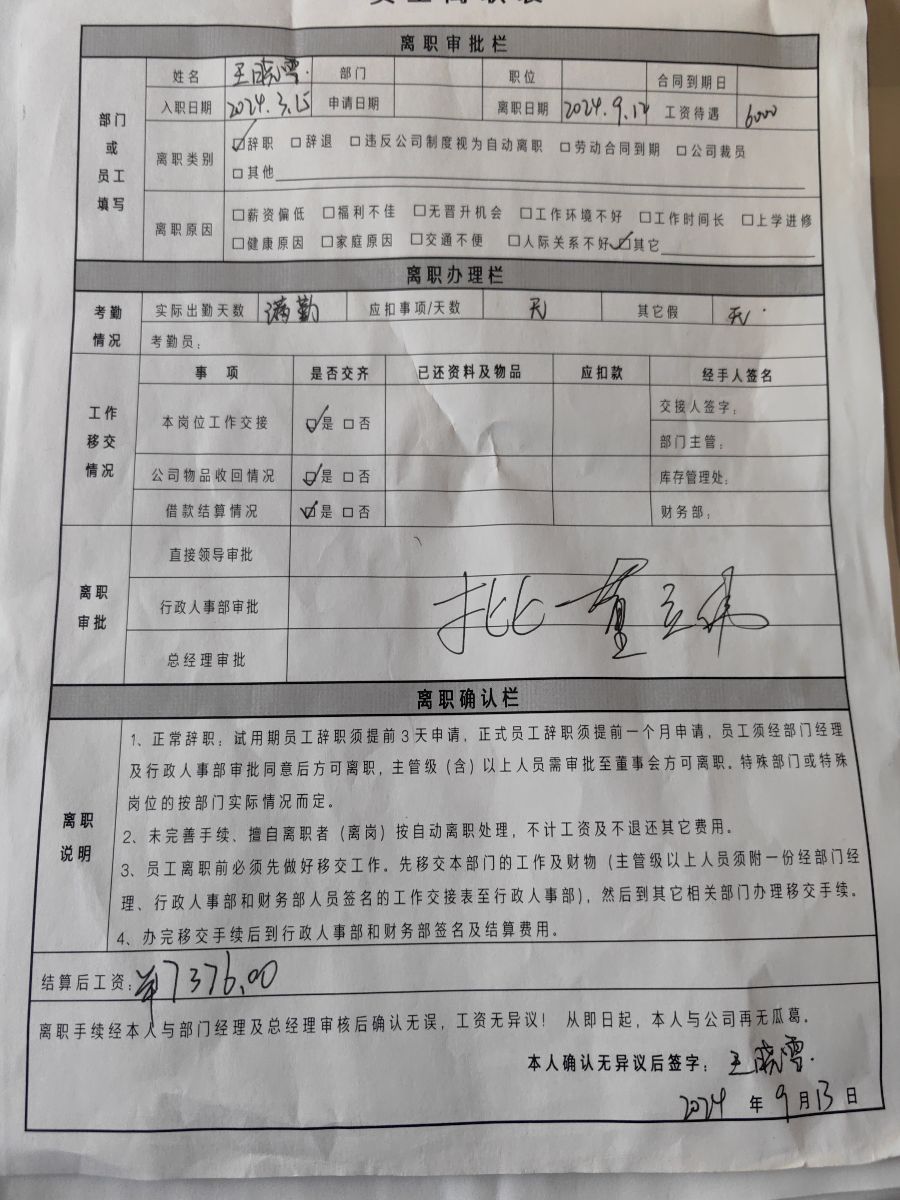 离职审批栏
部门或员工填写
姓名 王晓雪 部门 职位 合同到期日
入职日期 2024.3.15 申请日期 离职日期 2024.9.12 工资待遇 6000
离职类别 ☑辞职 □辞退 □违反公司制度视为自动离职 □劳动合同到期 □公司裁员
□其他
离职原因 □薪资偏低 □福利不佳 □无晋升机会 □工作环境不好 □工作时间长 □上学进修
□健康原因 □家庭原因 □交通不便 □人际关系不好 ☑其它
离职办理栏
考勤情况
实际出勤天数 满勤 应扣事项/天数 无 其它假 无
考勤员：
工作移交情况
事 项 是否交齐 已还资料及物品 应扣款 经手人签名
本岗位工作交接 ☑是 □否 交接人签字：
部门主管：
公司物品收回情况 ☑是 □否 库存管理处：
借款结算情况 ☑是 □否 财务部：
离职审批
直接领导审批
行政人事部审批 批
总经理审批
离职确认栏
离职说明
1、正常辞职：试用期员工辞职须提前3天申请，正式员工辞职须提前一个月申请，员工须经部门经理
及行政人事部审批同意后方可离职，主管级（含）以上人员需审批至董事会方可离职。特殊部门或特殊
岗位的按部门实际情况而定。
2、未完善手续、擅自离职者（离岗）按自动离职处理，不计工资及不退还其它费用。
3、员工离职前必须先做好移交工作。先移交本部门的工作及财物（主管级以上人员须附一份经部门经
理、行政人事部和财务部人员签名的工作交接表至行政人事部），然后到其它相关部门办理移交手续。
4、办完移交手续后到行政人事部和财务部签名及结算费用。
结算后工资：¥7376.00
离职手续经本人与部门经理及总经理审核后确认无误，工资无异议！ 从即日起，本人与公司再无瓜葛。
本人确认无异议后签字：王晓雪
2024 年 9 月 13 日